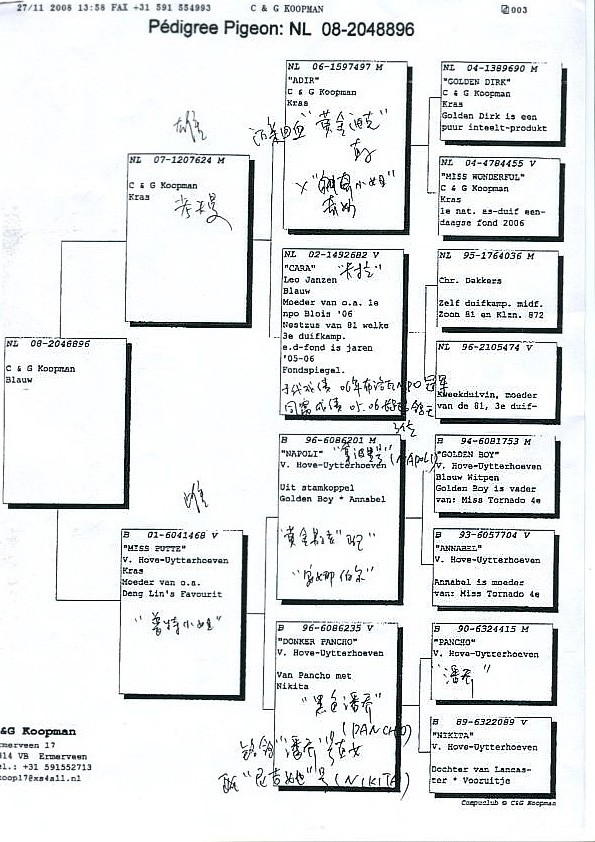 27/11 2008 13:58 FAX +31 591 554993 C & G KOOPMAN 003
Pédigree Pigeon: NL 08-2048896
NL 08-2048896
C & G Koopman
Blauw
雄
NL 07-1207624 M
C & G Koopman
Kras
考夫曼
雌
B 01-6041468 V
"MISS PUTTE"
V. Hove-Uytterhoeven
Kras
Moeder van o.a.
Deng Lin's Favourit
"普特小姐"
NL 06-1597497 M
"ADIR"
C & G Koopman
Kras
"黄金迪克"
NL 02-1492682 V
"CARA" "卡拉"
Leo Janzen
Blauw
Moeder van o.a. 1e
npo Blois '06
Nestzus van 81 welke
3e duifkamp.
e.d-fond is jaren
'05-06
Fondspiegel.
B 96-6086201 M
"NAPOLI" (NAPOLI)
V. Hove-Uytterhoeven
Uit stamkoppel
Golden Boy * Annabel
B 96-6086235 V
"DONKER PANCHO"
V. Hove-Uytterhoeven
Van Pancho met
Nikita
"黑色潘乔"
(PANCHO)
(NIKITA)
NL 04-1389690 M
"GOLDEN DIRK"
C & G Koopman
Kras
Golden Dirk is een
puur inteelt-produkt
NL 04-4784455 V
"MISS WONDERFUL"
C & G Koopman
Kras
1e nat. as-duif een-
daagse fond 2006
NL 95-1764036 M
Chr. Dekkers
Zelf duifkamp. midf.
Zoon 81 en Klzn. 872
NL 96-2105474 V
Kweekduivin, moeder
van de 81, 3e duif-
B 94-6081753 M
"GOLDEN BOY"
V. Hove-Uytterhoeven
Blauw Witpen
Golden Boy is vader
van: Miss Tornado 4e
B 93-6057704 V
"ANNABEL"
V. Hove-Uytterhoeven
Annabel is moeder
van: Miss Tornado 4e
B 90-6324415 M
"PANCHO"
V. Hove-Uytterhoeven
"潘乔"
B 89-6322089 V
"NIKITA"
V. Hove-Uytterhoeven
Dochter van Lancas-
ter * Vooruitje
&G Koopman
rmerveen 17
814 VB Ermerveen
el.: +31 591552713
koop17@xs4all.nl
Compuclub © C&G Koopman